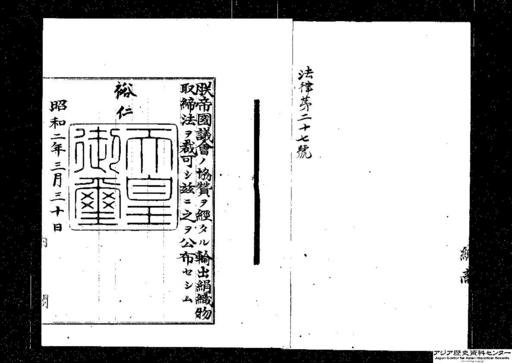 法律第二十七號
朕帝國議會ノ協贊ヲ經タル輸出絹織物
取締法ヲ裁可シ玆ニ之ヲ公布セシム
裕仁
天皇御璽
昭和二年三月三十日
アジア歴史資料センター
Japan Center for Asian Historical Records